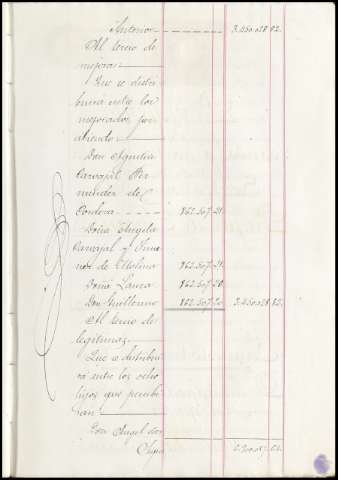 Anterior - - - - - - 3.450.028.82.
Al tercio de
mejoras
Que se distri
buirá entre los
mejorados, por
Don Agustin
Carvajal Fer
nandez de
Cordova - - - - 862.507.21.
Doña Angela
Carvajal y Jime
nez de Molina 862.507.21.
Doña Laura 862.507.20
Don Guillermo 862.507.20 3.450.028.82.
Al tercio de
legitimas.
Que se distribui
rá entre los ocho
hijos que perciben
Don Angel dos